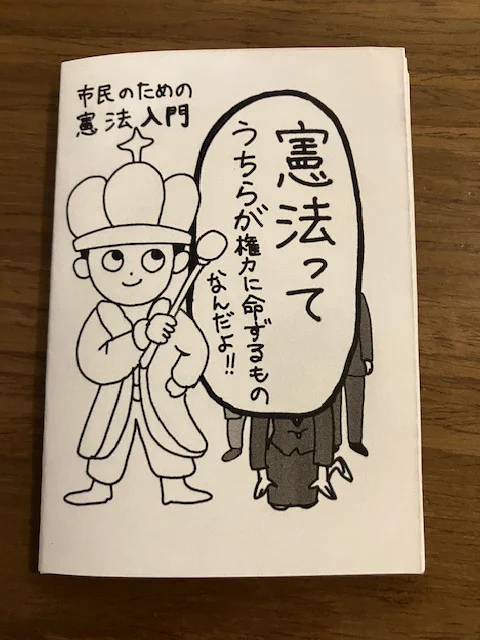 市民のための
憲法入門
憲法って
うちらが権力に命ずるもの
なんだよ!!